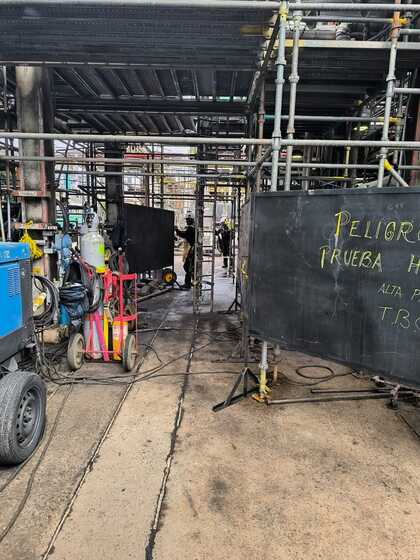 PELIGRO
PRUEBA H
ALTA P
TB